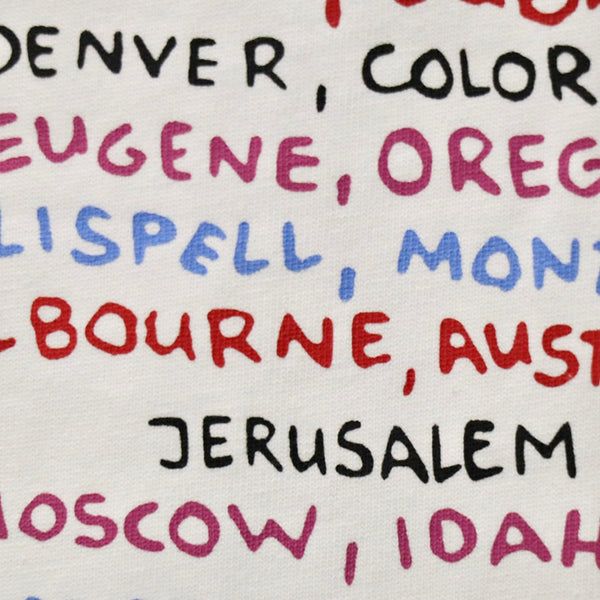 DENVER, COLOR
EUGENE, OREG
LISPELL, MONT
LBOURNE, AUST
JERUSALEM
MOSCOW, IDAH